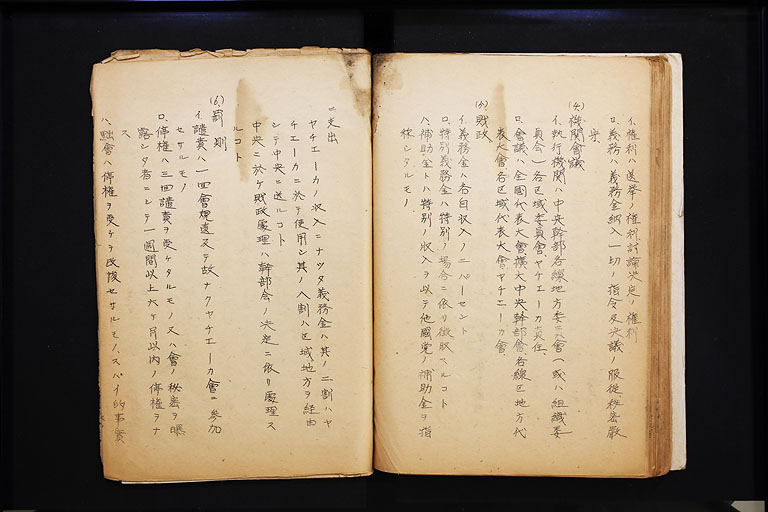 イ、権利ハ選挙ノ権利討論決定ノ権利
ロ、義務ハ義務金納入一切ノ指令及決議ノ服従秘密厳
守
(4)機関會議
イ、執行機関ハ中央幹部各線地方委員會(或ハ組織委
員会)各区域委員會ヤチエーカ責任
ロ、會議ハ全國代表大會擴大中央幹部會各線区地方代
表大會各区域代表大會ヤチエーカ會
(5)財政
イ、義務金ハ各自収入ノ二パーセント
ロ、特別義務金ハ特別ノ場合ニ依リ徴収スルコト
ハ、補助金トハ特別ノ収入ヲ以テ他國党ノ補助金ヲ指
称シタルモノ
ニ、支出
ヤチエーカノ収入ニナツタ義務金ハ其ノ二割ハヤ
チエーカニ於テ使用シ其ノ八割ハ区域地方ヲ経由
シテ中央ニ送ルコト
中央ニ於ケ財政處理ハ幹部会ノ決定ニ依リ處理ス
ルコト
(6)罰則
イ、譴責ハ一四會規違反テ故ナクヤチエーカ會ニ参加
セサルモノ
ロ、停権ハ三回譴責ヲ受ケタルモノ又ハ會ノ秘密ヲ曝
露シタ者ニシテ一週間以上六ケ月以内ノ停権ヲナ
ス
ハ、黜會ハ停権ヲ受ケテ改悛セサルモノ、スパイ的事實